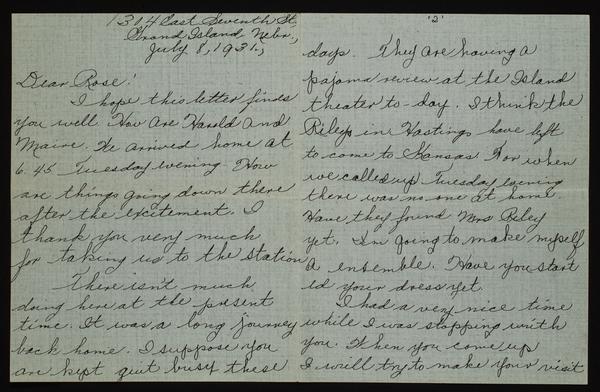 1314 East Seventh St,
Grand Island Nebr.,
July 8, 1931.,
Dear Rose:
I hope this letter finds
you well How are Harold and
Maire. We arrived home at
6.45 Tuesday evening How
are things going down there
after the excitement. I
thank you very much
for taking us to the station
There isn't much
doing here at the present
time. It was a long journey
back home. I suppose you
are kept quit busy these
'2'
days. They are having a
pajama review at the Island
theater to-day. I think the
Rileys in Hastings have left
to come to Kansas For when
we called up Tuesday evening
there was no one at home
Have they found Mrs Riley
yet. I'm going to make myself
a ensemble. Have you start
ed your dress yet.
I had a very nice time
while I was stopping with
you. When you come up
I will try to make your visit